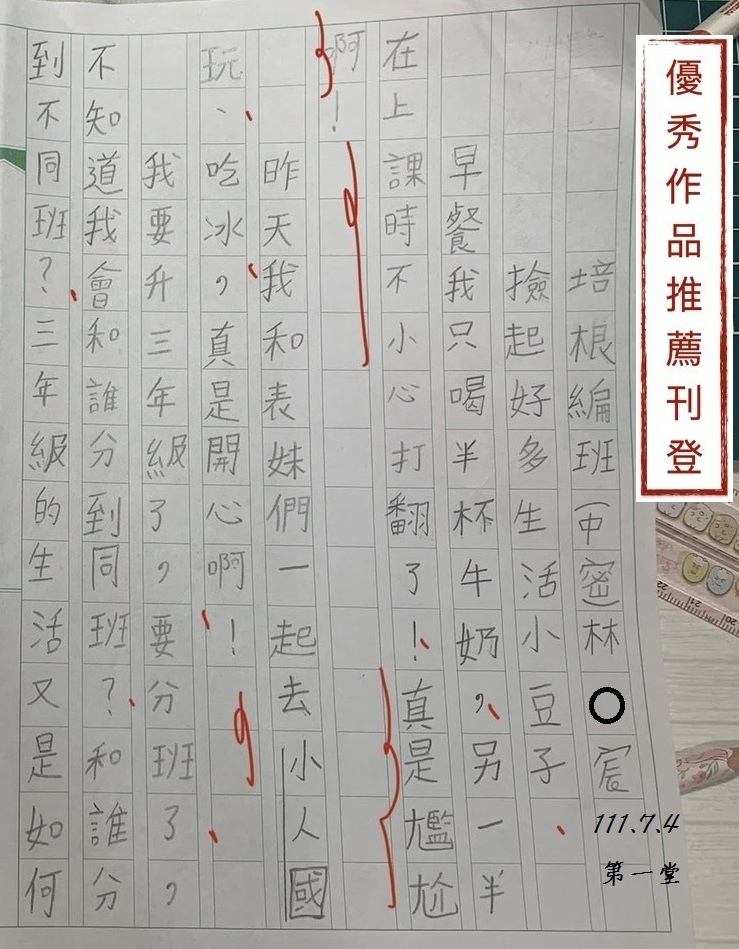 優秀作品推薦刊登
培根編班(中密)林○宸
111.7.4
第一堂
撿起好多生活小豆子
早餐我只喝半杯牛奶，另一半
在上課時不小心打翻了！真是尷尬
啊！
昨天我和表妹們一起去小人國
玩、吃冰，真是開心啊！
我要升三年級了，要分班了，
不知道我會和誰分到同班？和誰分
到不同班？三年級的生活又是如何